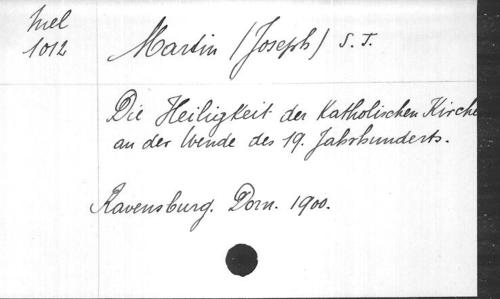 Mel
1012
Martin (Joseph) S. J.
Die Heiligkeit der Katholischen Kirche
an der Wende des 19. Jahrhunderts.
Ravensburg. Dorn. 1900.